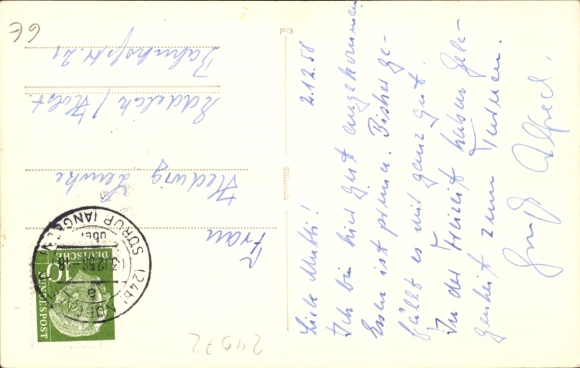 2.12.58
Liebe Mutti!
Ich bin hier gut angekommen
Essen ist prima. Bisher ge-
fällt es mir ganz gut.
In der Freizeit haben Gele-
genheit zum Turnen.
Gruß Alfred.
Frau
Hedwig
Eddelak / Holst
Bahnhofstr. 21
(24b)
über
SÖRUP (ANGELN)
a
DEUTSCHE
BUNDESPOST
10
24972
6€